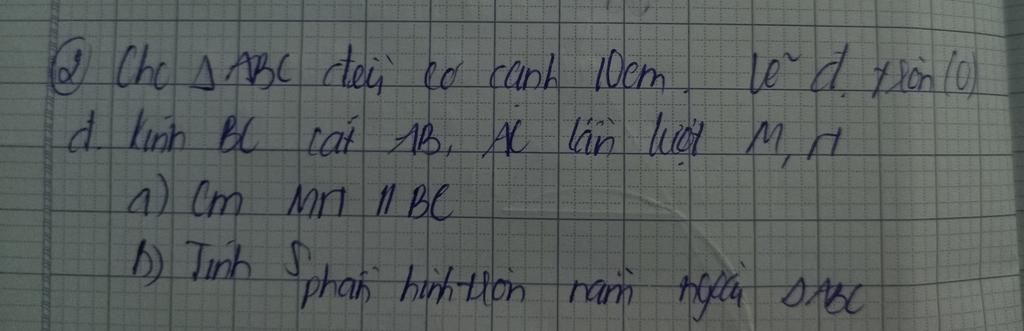 ② Cho Δ ABC đều có cạnh 10cm. Vẽ đ. tròn (O)
đ. kính BC cắt AB, AC lần lượt M, N
a) Cm MN // BC
b) Tính S phần hình tròn nằm ngoài ΔABC